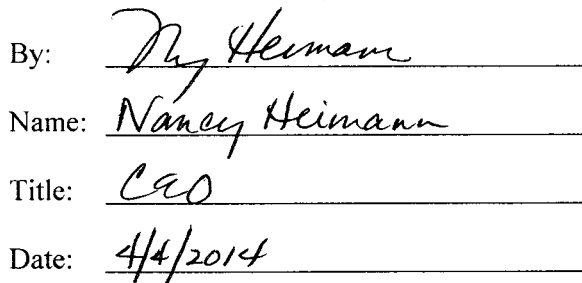 By: Ny Heimann
Name: Nancy Heimann
Title: CEO
Date: 4/4/2014